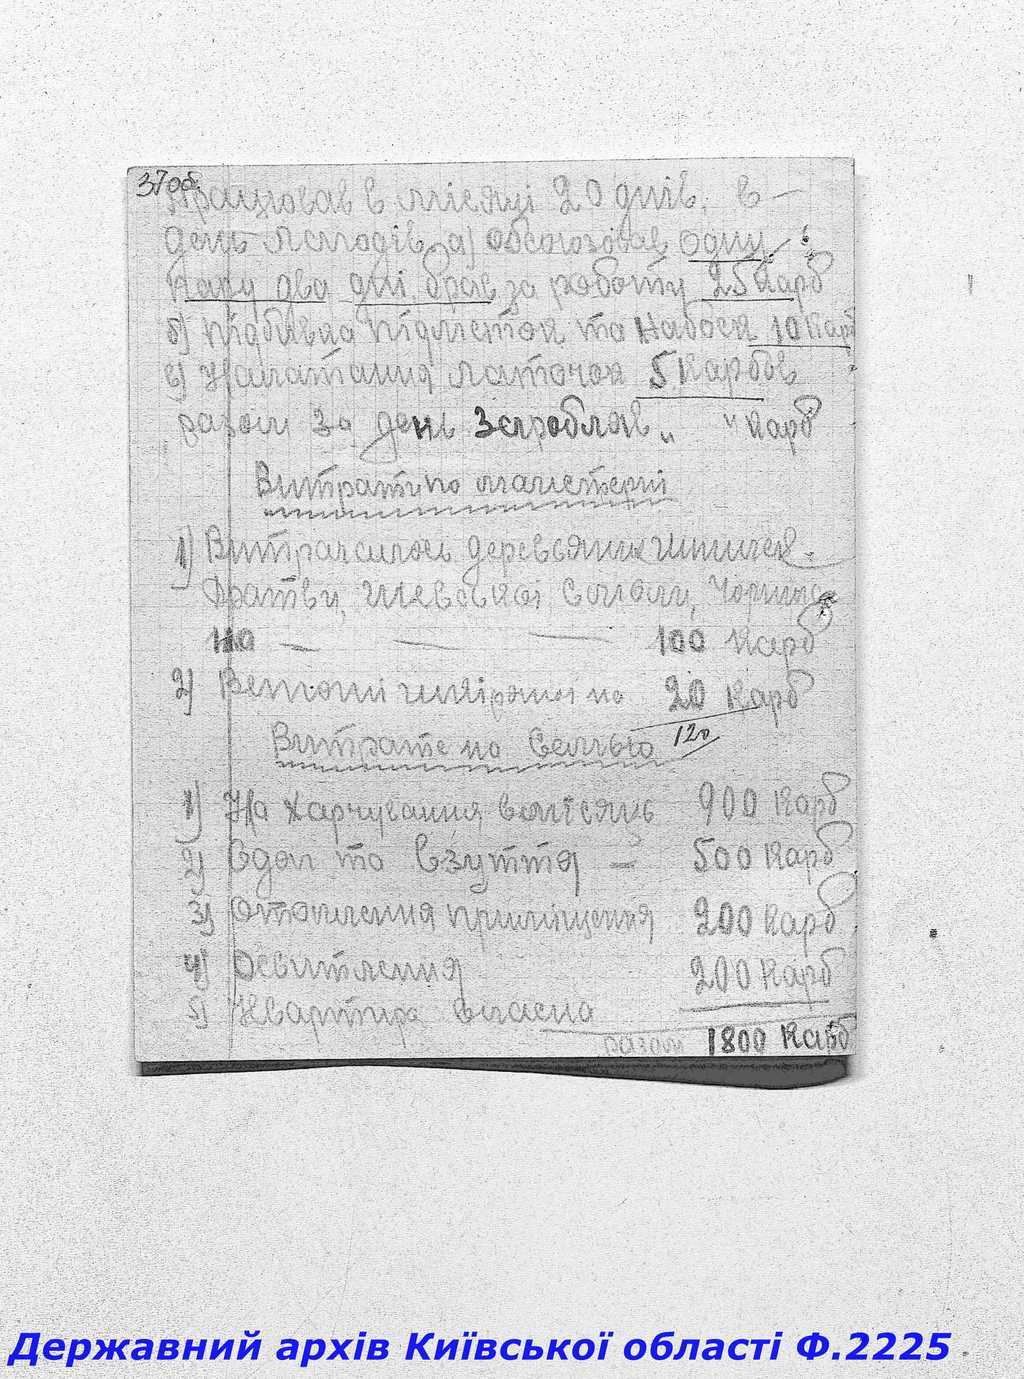 37об.
Працював в місяці 20 днів. в —
день методів а) обсоюзовав одну
пару два дні, брав за роботу 25 Карб
б) підбивка підметок та набоек 10 Карб
в) Налатання латочок 5 Карбов
разом За день Зароблав „ " Карб
Витрати по матерії
1) деревсяних шпилек
Дратви, шевської смоли,
на — — — 100 Карб
2) по 20 Карб
Витрате на Семью 120
1) На Харчування вмісяць 900 Карб
2) Одяг та Взуття — 500 Карб
3) Отоплення приміщення 200 Карб
4) Освитлення 200 Карб
5) Квартира власна
разом 1800 Карб
Державний архів Київської області Ф.2225